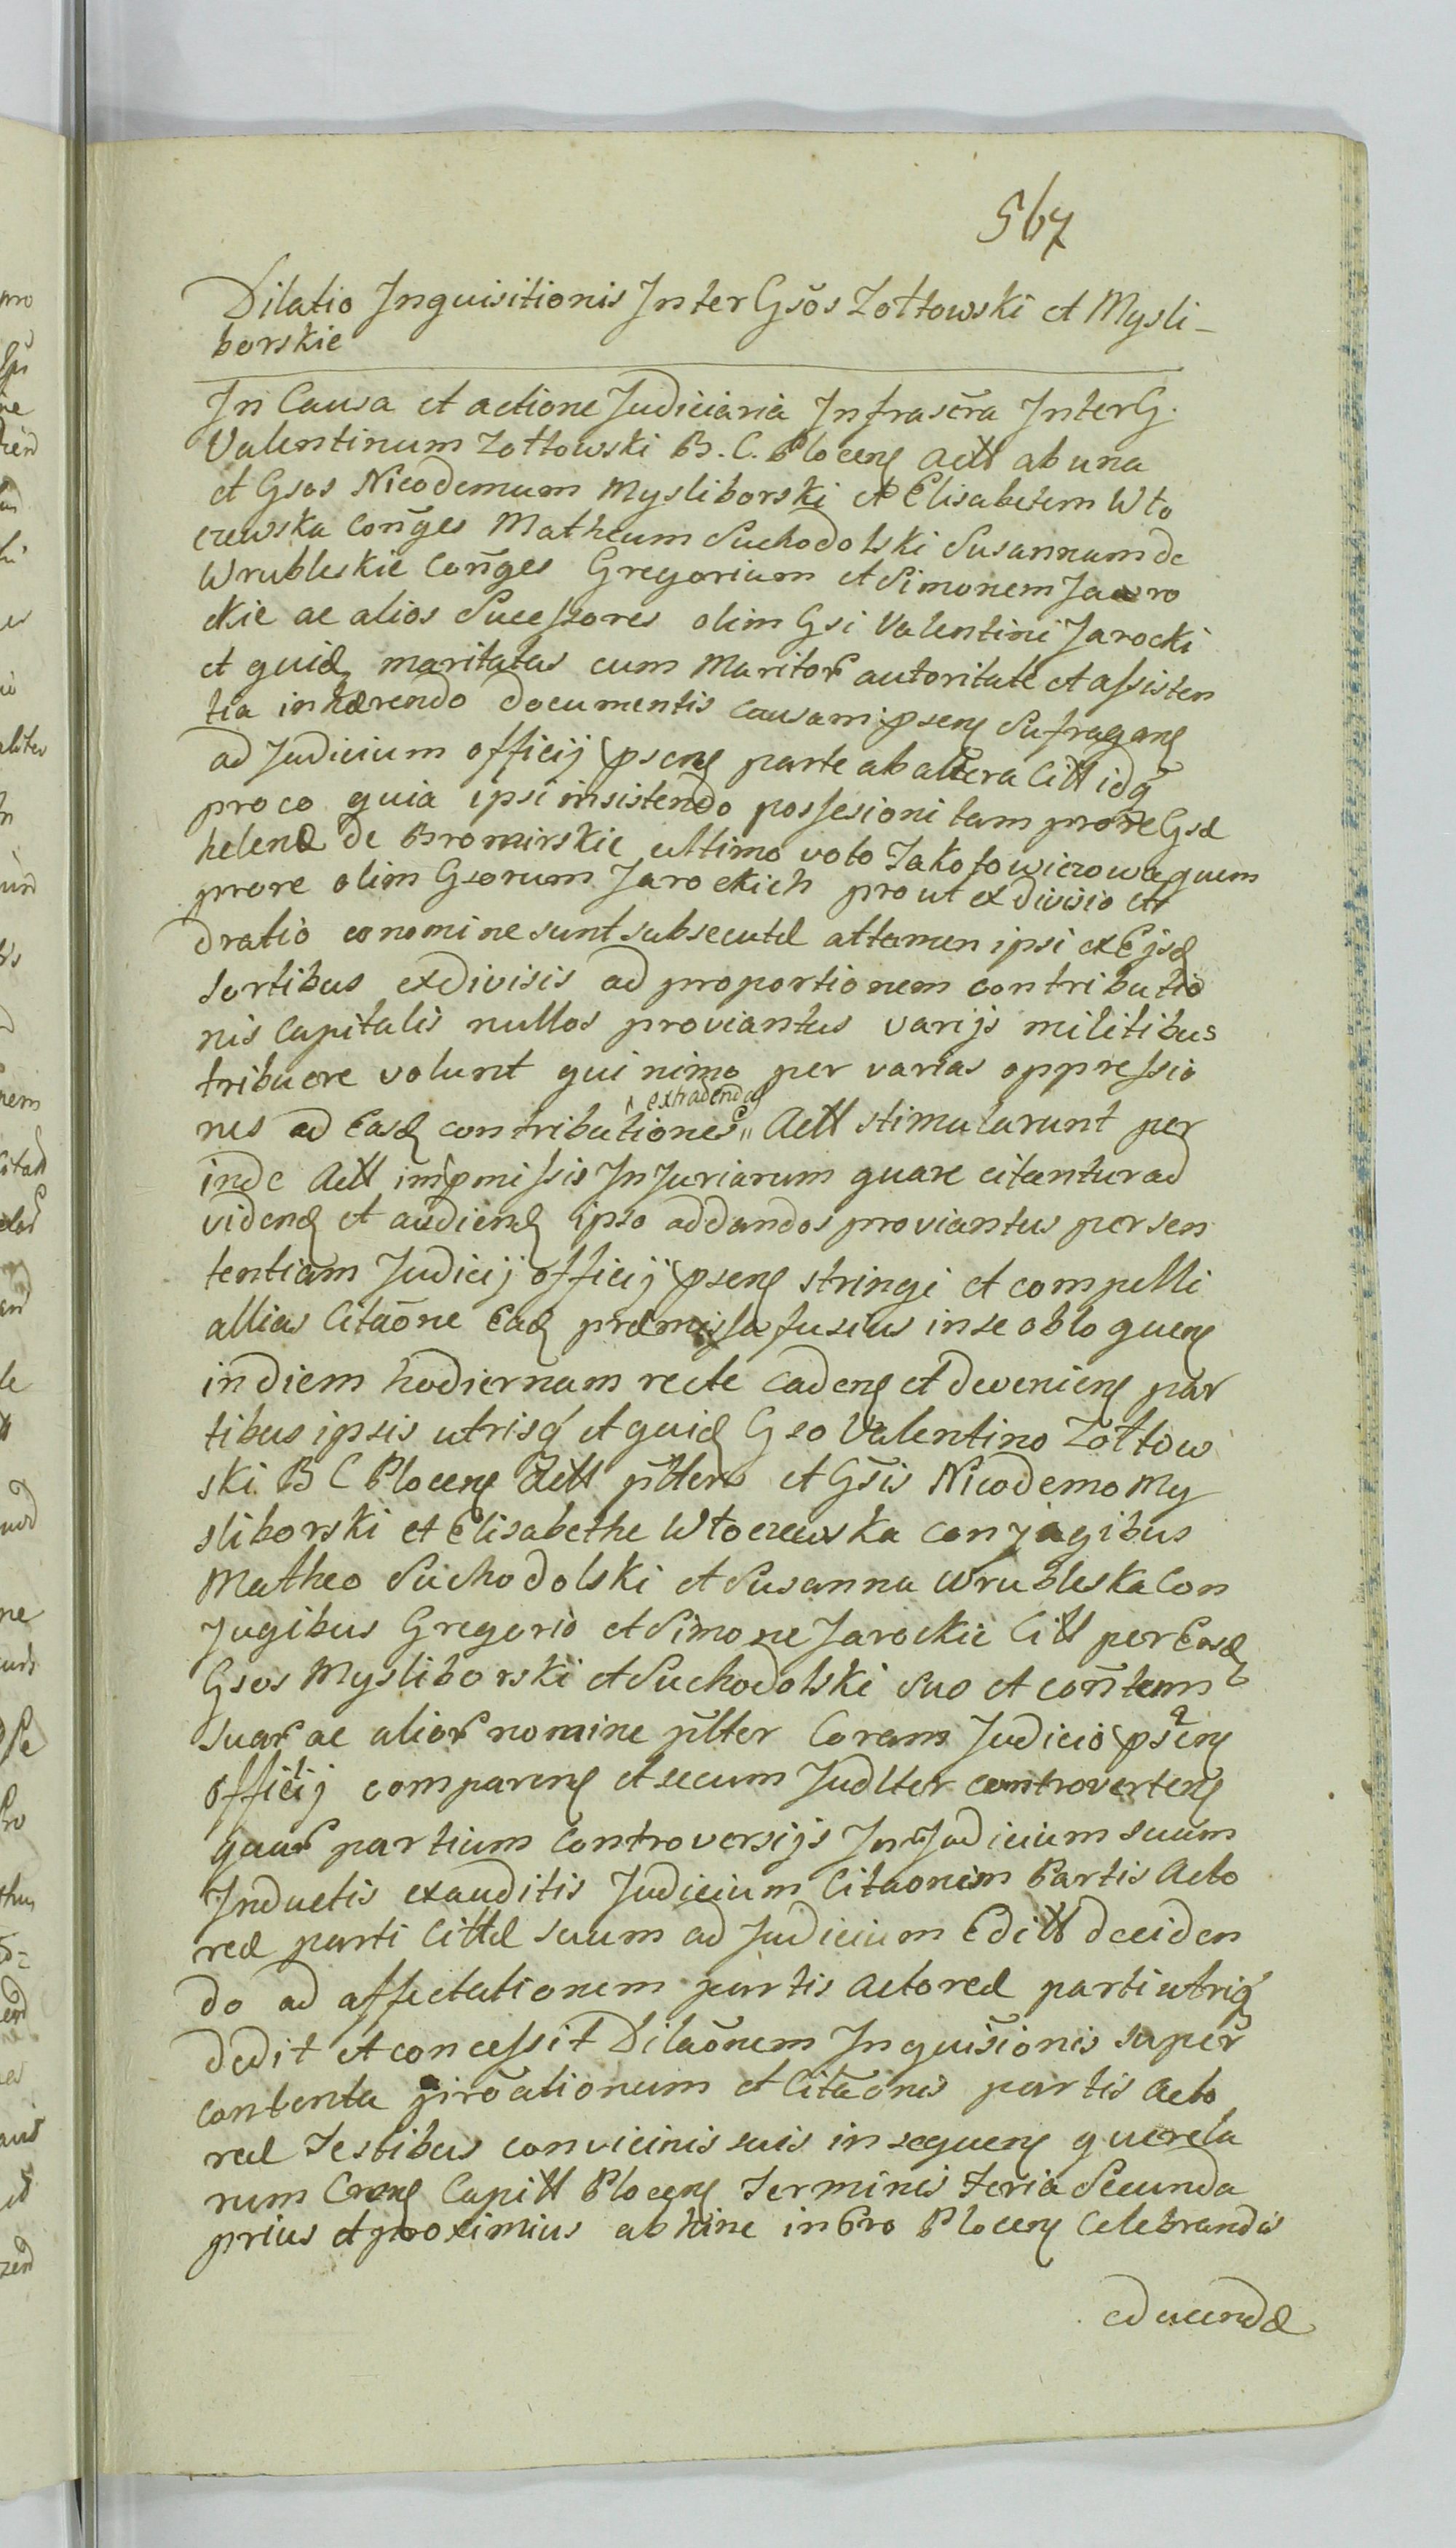 567
Dilatio Inquisitionis Inter Gsos Zołtowski et Mysli-
borskie
In Causa et actione Judiciaria Infrascra Inter G.
Valentinum Zołtowski B. C. Plocen Actt ab una
et Gsos Nicodemum Mysliborski et Elisabetem Wło
czewska Conges Matheum Suchodolski Susannam de
Wrubleskie Conges Gregorium et Simonem Jaro
ckie ac alios Sucessores olim Gsi Valentini Jarocki
et quid maritatas cum Maritor autoritate et assisten
tia inhærendo documentis causam psen Sufragan
ad Judicium officij psen parte ab altera Citt idq
pro eo quia ipsi insistendo possesioni tam prore Gsæ
helenæ de Bromirskie ultimo voto Jakofowiczowa quam
prore olim Gsorum Jarockich prout exdivisio et
dratio eo nomine sunt subsecutæ attamen ipsi ex Ejsd
sortibus exdivisis ad proportionem contributio
nis Capitalis nullos proviantus varijs militibus
tribuere volunt qui nimo per varias oppressio
extradend
nes ad Easd contributiones " Actt stimularunt per
inde Actt impmissis Injuriarum quare citantur ad
vidend et audiend ipso addandos proviantus per sen
tentiam Judicij officij psen stringi et compelli
allias Citaone Ead præmissa fusius in se obloquen
in diem hodiernam recte caden et devenien par
tibus ipsis utrisq et quid Gso Valentino Zołtow
ski B C Plocen Actt pltter et Gsis Nicodemo My
sliborski et Elisabethe Włoczewska conjugibus
Matheo Suchodolski et Susanna Wrubleska Con
jugibus Gregorio et Simone Jarockie Citt per Eosd
Gsos Mysliborski et Suchodolski suo et contum
suar ac alior nomine pltter Coram Judicio psen
officij comparen et secum Judlter controverten
quar partium controversijs In Judicium suum
Inductis exauditis Judicium Citaonem Partis Acto
reæ parti Cittæ suum ad Judicium Editt deciden
do ad affectationem partis Actoreæ parti utriq
dedit et concessit Dilaonem Inquisionis super
contenta pirocationum et Citaonis partis Acto
reæ Testibus convicinis suis in sequen querela
rum Cren Capitt Plocen Terminis Feria Secunda
prius et proximius ab hinc in Cro Plocen Celebrandis
adducendæ